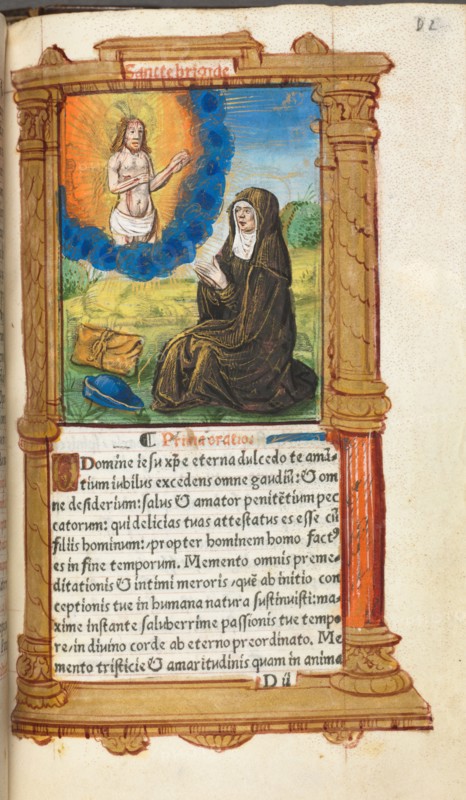 D 2
Sancte brigide
¶ Prima oratio.
O Domine iesu xp̄e eterna dulcedo te amã⸗
tium iubilus excedens omne gaudiũ: & om
ne desiderium: salus & amator penitẽtium pec
catorum: qui delicias tuas attestatus es esse cũ
filiis hominum: propter hominem homo factꝰ
es in fine temporum. Memento omnis preme⸗
ditationis & intimi meroris, quẽ ab initio con
ceptionis tue in humana natura sustinuisti: ma⸗
xime instante saluberrime passionis tue tempo
re, in diuino corde ab eterno preordinato. Me
mento tristicie & amaritudinis quam in anima
D ii